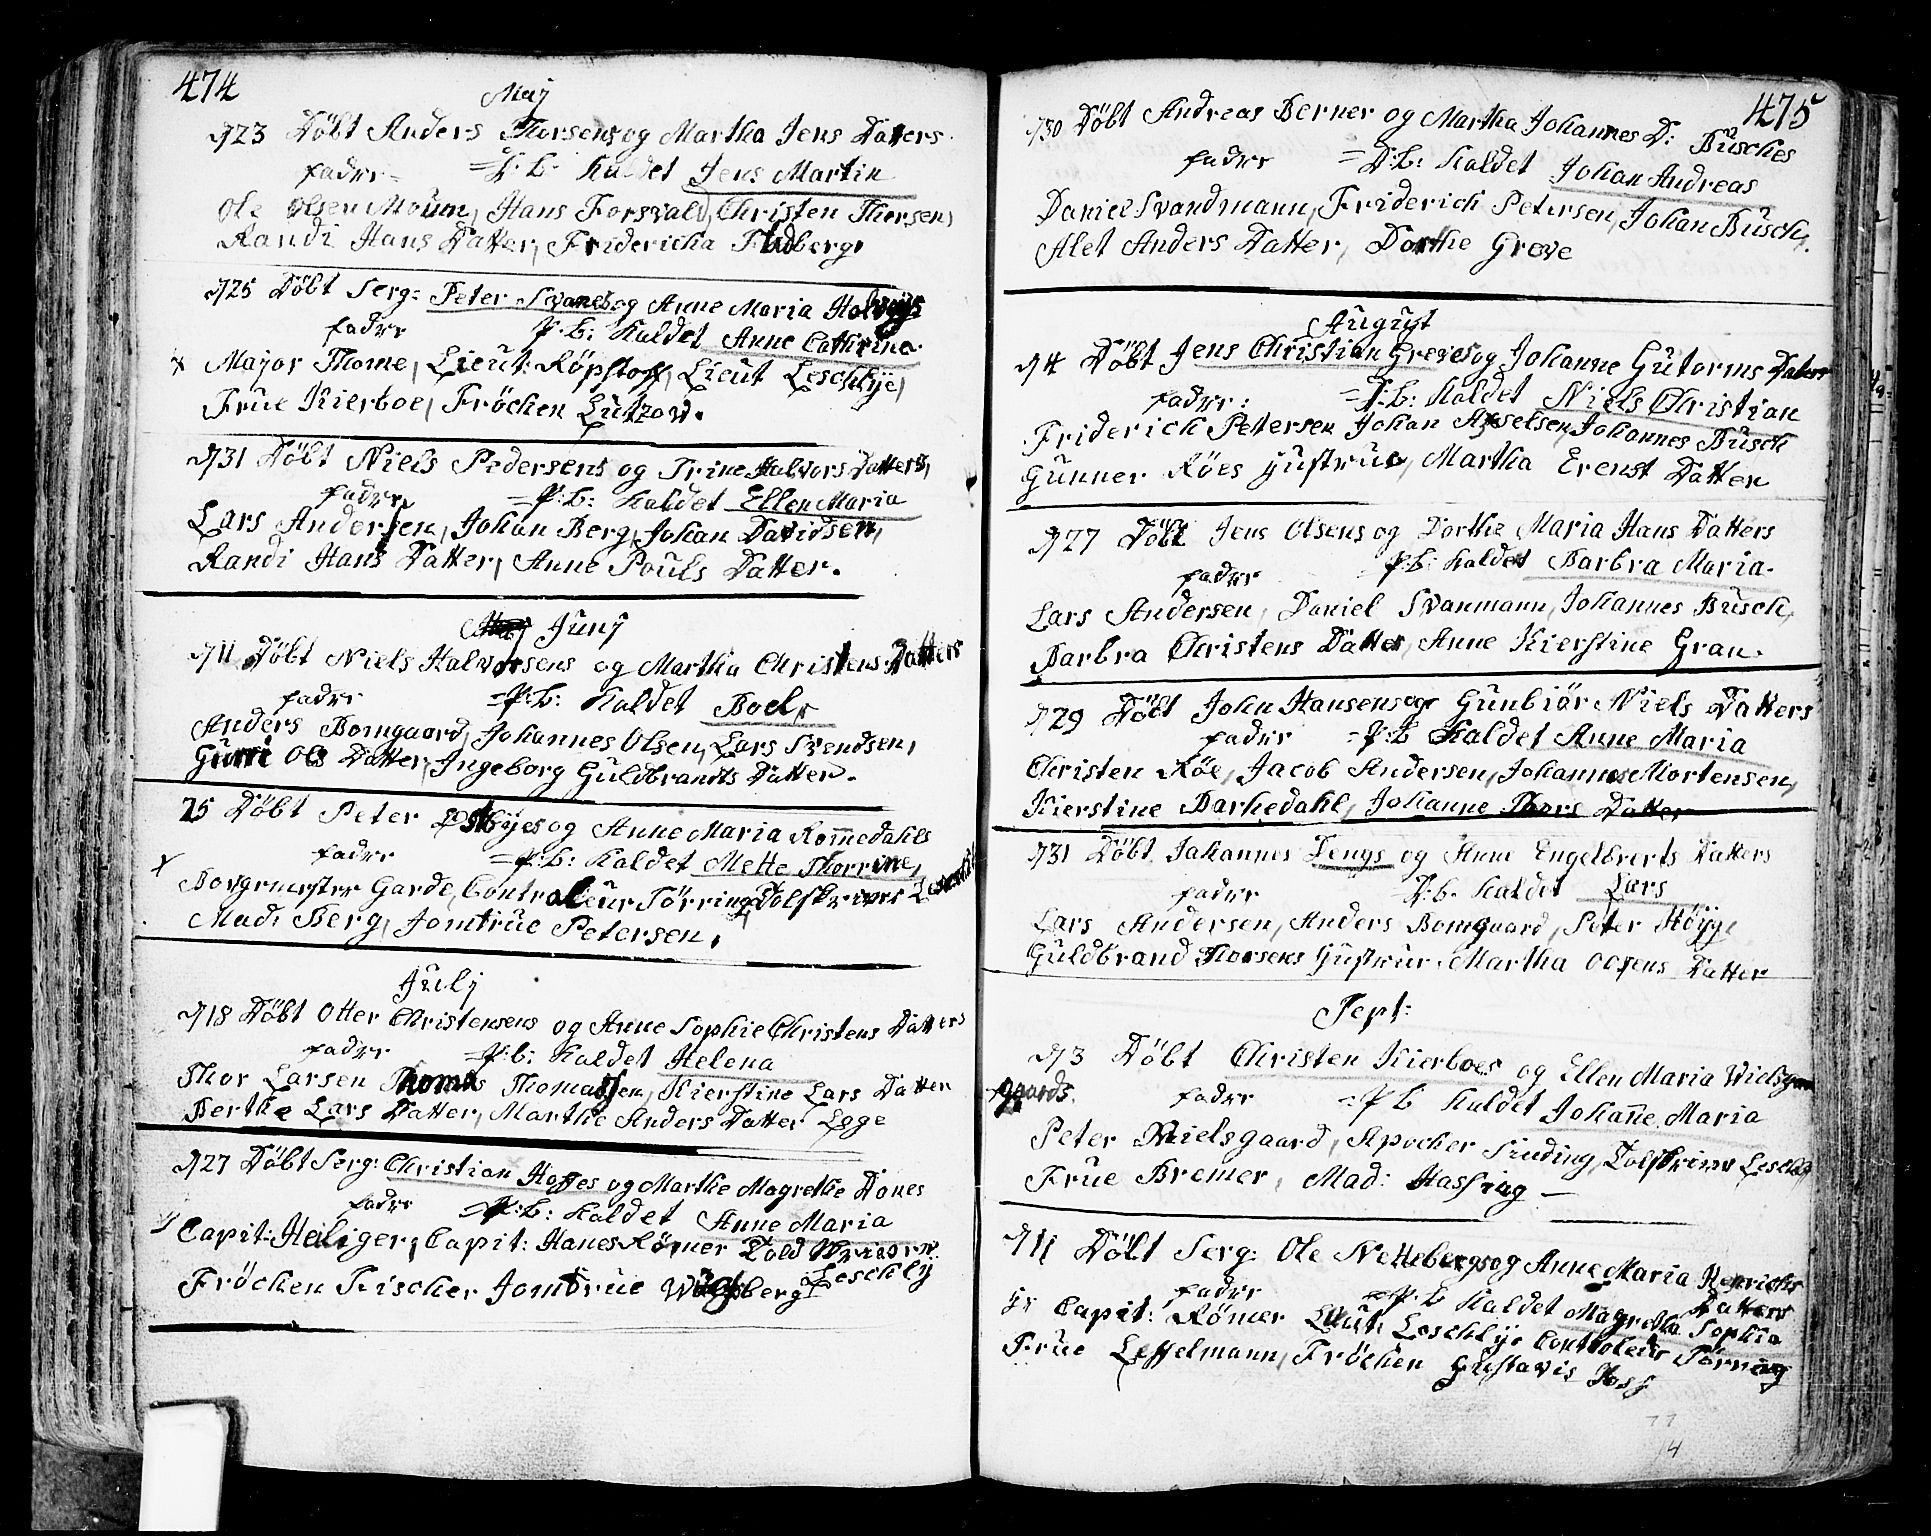 474
Maj
d 23 Döbt Anders Thorsens og Martha Jens Datters
fadrr = P: b: kaldet Jens Martin
Ole Olsen Moum, Hans Forsvald, Christen Thorsen,
Randi Hans Datter, Fridericha
d 25 Döbt Serg: Peter Svanes og Anne Maria
fadrr P: b: kaldet Anne Cathrina
x Major Thome, Lieut: Röpstoff, Lieut Leschlÿe,
Frue Kierboe, Fröchen Lützow.
d 31 Döbt Niels Pedersens og Trine Halvors Datters,
fadrr = P: b: kaldet Ellen Maria
Lars Andersen, Johan Berg, Johan Davidsen,
Randi Hans Datter, Anne Pouls Datter.
Junj
d 11 Döbt Niels Halvorsens og Martha Christens Datters
fadrr = P: b: kaldet Boel
Anders Bomgaard, Johannes Olsen, Lars Svendsen,
Gurri Ols Datter, Ingeborg Guldbrandts Datter.
25 Döbt Peter Østbÿes og Anne Maria Rom̅edahls
fadrr = P: b: kaldet Mette Thorrine,
x Borgemester Garde, Controleur Törring, Tolskriver
Mad: Berg, Jomfrue Petersen,
Julj
d 18 Döbt Otter Christensens og Anne Sophie Christens Datters
fadrr = P: b: kaldet Helena
Thor Larsen Thomas Thomassen, Kierstine Lars Datter
Berthe Lars Datter, Marthe Anders Datter Lege
d 27 Döbt Serg: Christian Hoffes og Marthe Magrethe Dones
fadrr = P: b: kaldet Anne Maria
Capit: Heiliger, Capit: Hanes Römer Told
Leschlÿ
Fröchen Fischer Jomfrue
475
d 30 Döbt Andreas Berner og Martha Johannes D: Busches
fadrr = P: b: kaldet Johan Andreas
Daniel Svandmann, Friderich Petersen, Johan Busch,
Alet Anders Datter, Dorthe Greve
August
d 4 Döbt Jens Christian Greves og Johanne Gutorms Daters
fadrr: = P: b: kaldet Niels Christian
Friderich Petersen Johan Axselsen, Johannes Busch
Gunner Röes Hustrue, Martha Erenst Datter
d 27 Döbt Jens Olsens og Dorthe Maria Hans Datters
fadrr P: b: kaldet Barbra Maria.
Lars Andersen, Daniel Svanmann, Johannes Busch,
Barbra Christens Datter, Anne Kierstine Gran.
d 29 Döbt John Hansens og Gunbiör Niels Datters
fadrr = P: b kaldet Anne Maria
Christen Röe, Jacob Andersen, Johannes Mortensen,
Kierstine Barkedahl, Johanne Thors Datter
d 31 Döbt Johannes Lengs og Anne Engelbrerts Datters
fadrr P: b. kaldet Lars
Lars Andersen, Anders Bomgaard, Peter Höÿg,
Guldbrand Thorsens Hustrue, Martha Olsens Datter
Sept:
d 3 Döbt Christen Kierboes og Ellen Maria
gaards. fadrr = P b kaldet Johan̅e Maria
Peter Nielsgaard, Apocher Sinding, Tolskriver
Frue Bremer, Mad: Hassing
d 11 Döbt Serg: Ole Nettebergs og Anne Maria Henrichs
Datters
fadrr = P: b kaldet Magretha Sophia
Capit: Römer Lieut: Leschlÿe Controleur Törring
Frue Lesselmann, Fröchen Gustavis